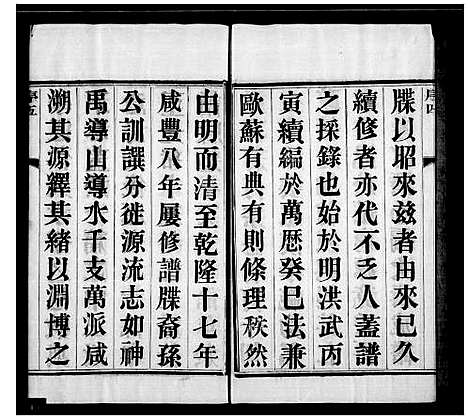 序四
牒以昭來茲者由來已久
續修者亦代不乏人蓋譜
之採錄也始於明洪武丙
寅續編於萬歷癸巳法兼
歐蘇有典有則條理秩然
由明而清至乾隆十七年
咸豐八年屢修譜牒裔孫
公訓譔分徙源流志如神
禹導山導水千支萬派咸
溯其源繹其緒以淵博之
序五